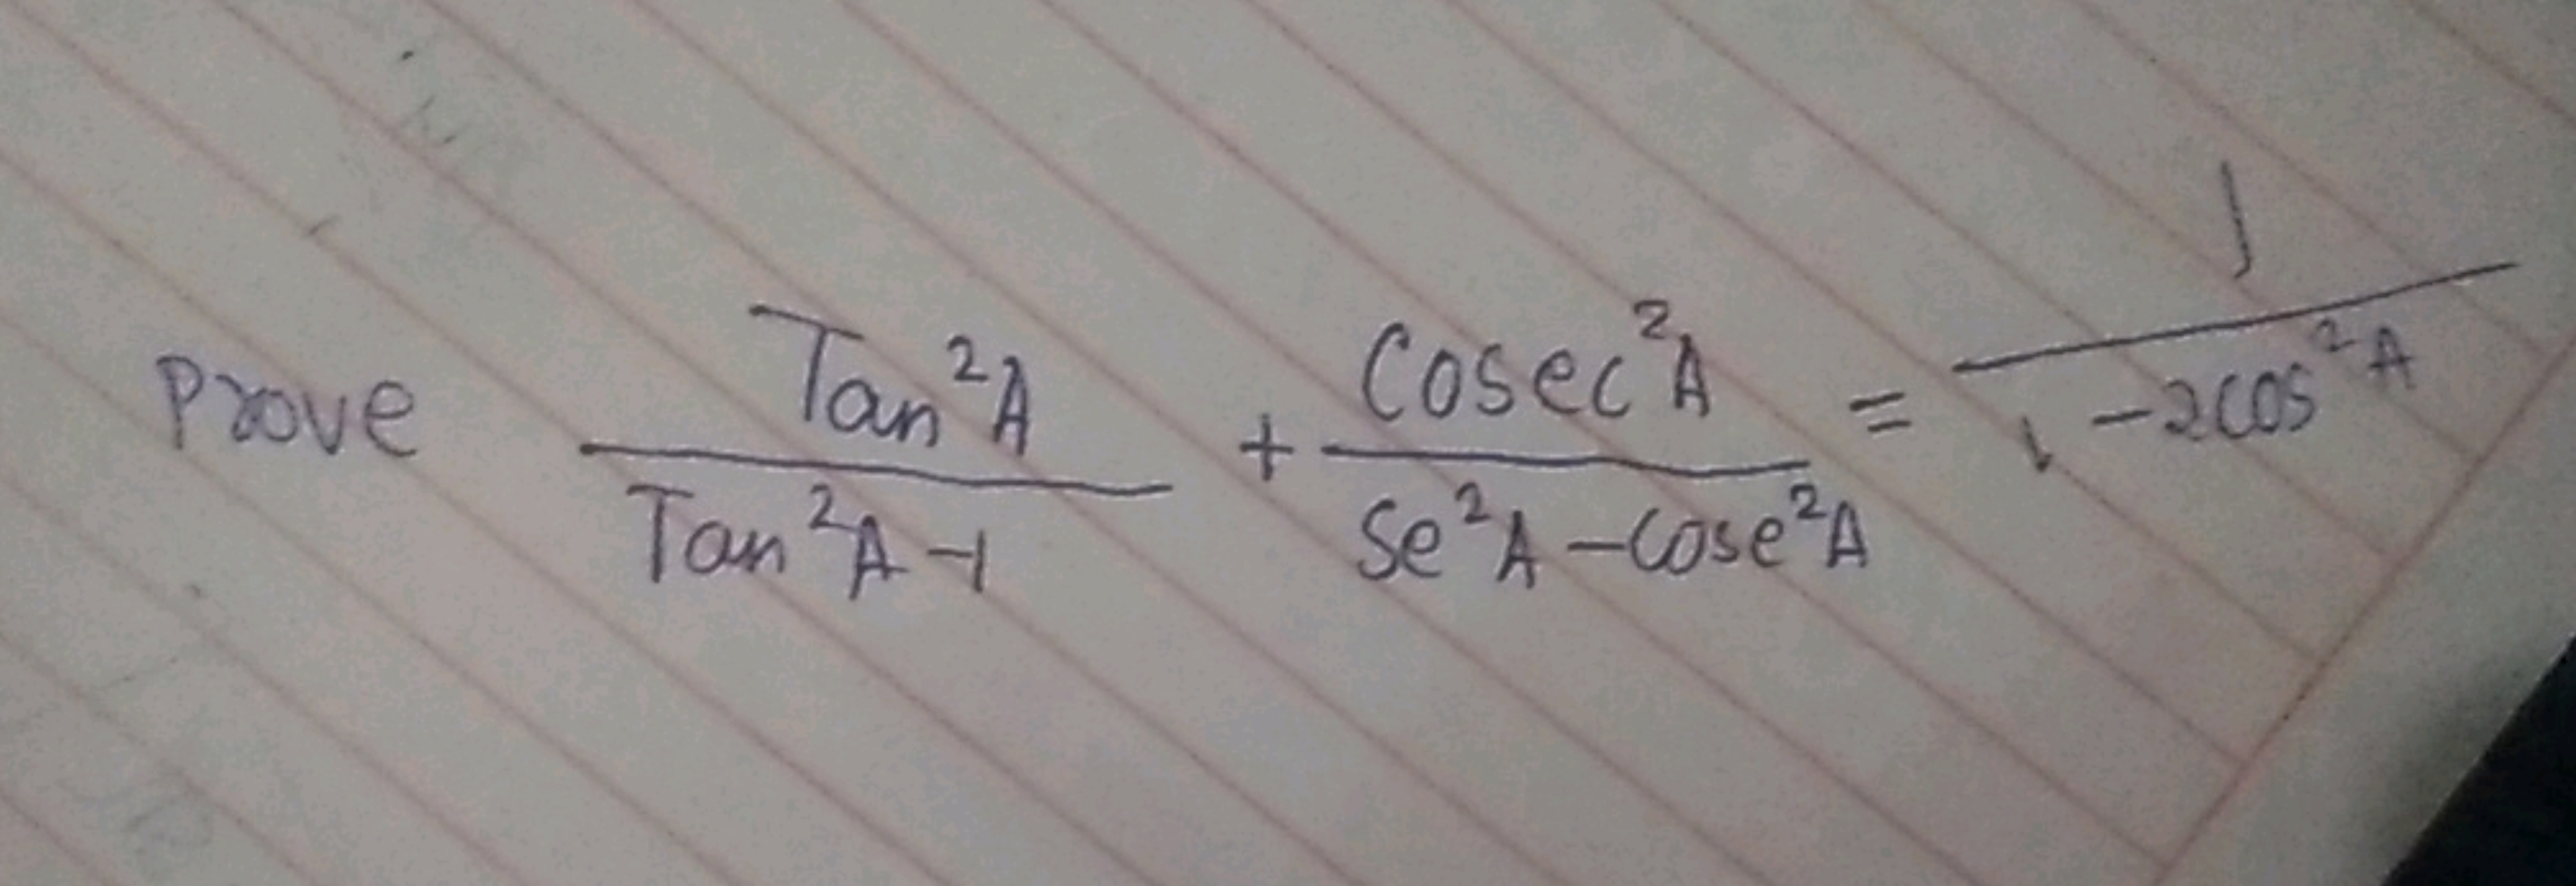 Prove Tan²A / Tan²A-1 + Cosec²A / Se²A-Cose²A = 1 / 1-2cos²A